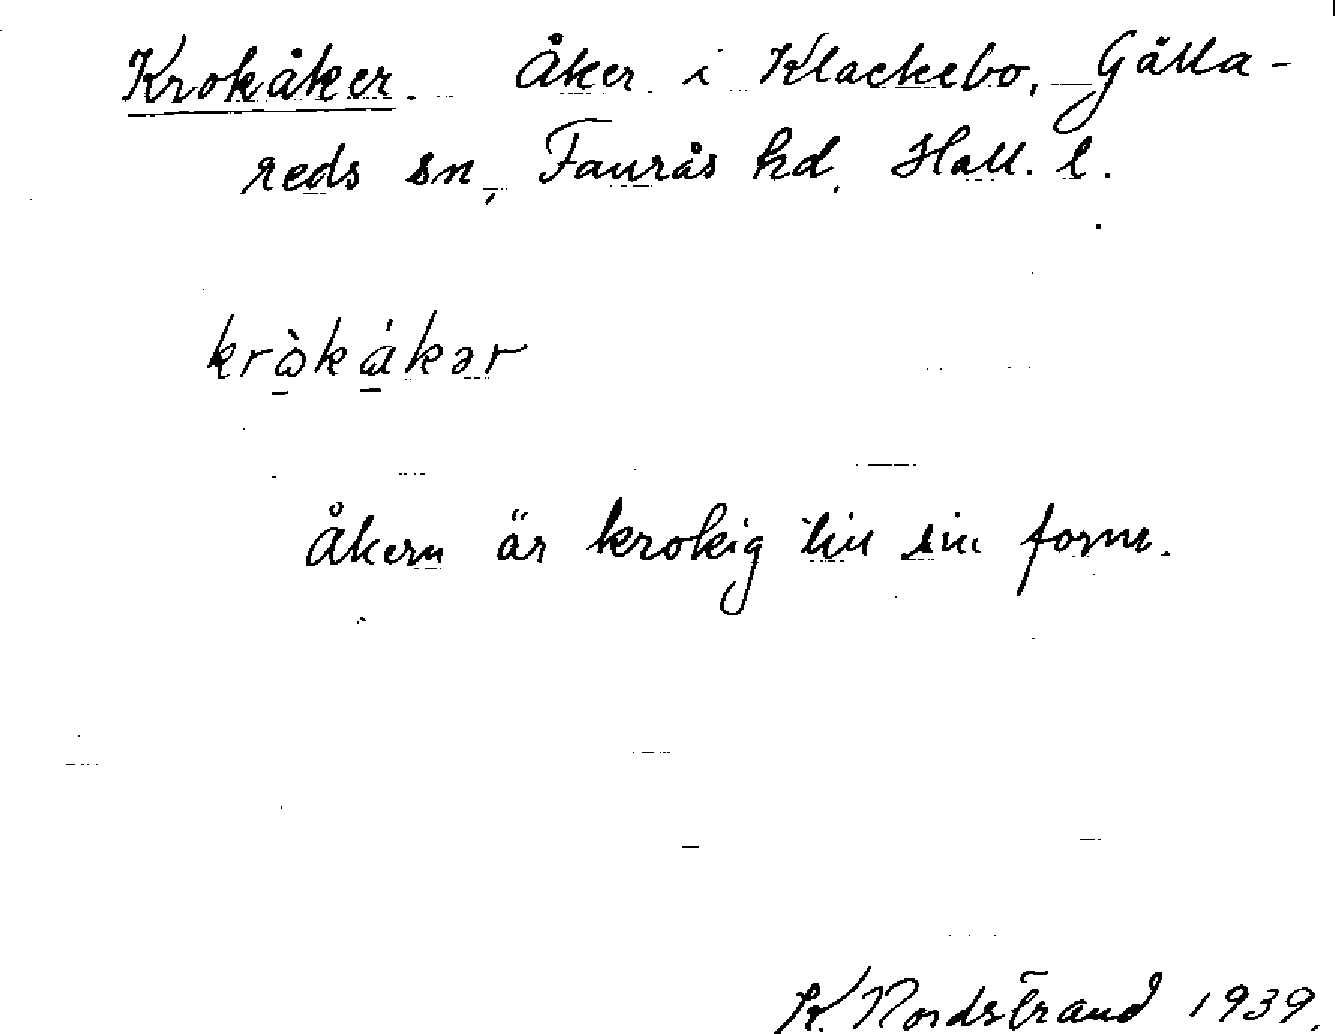 Krokåker. Åker i Klackebo, Gälla-
reds sn, Faurås hd, Hall. l.
krὼkákər
Åkern är krokig till sin form.
K. Nordstrand 1939.